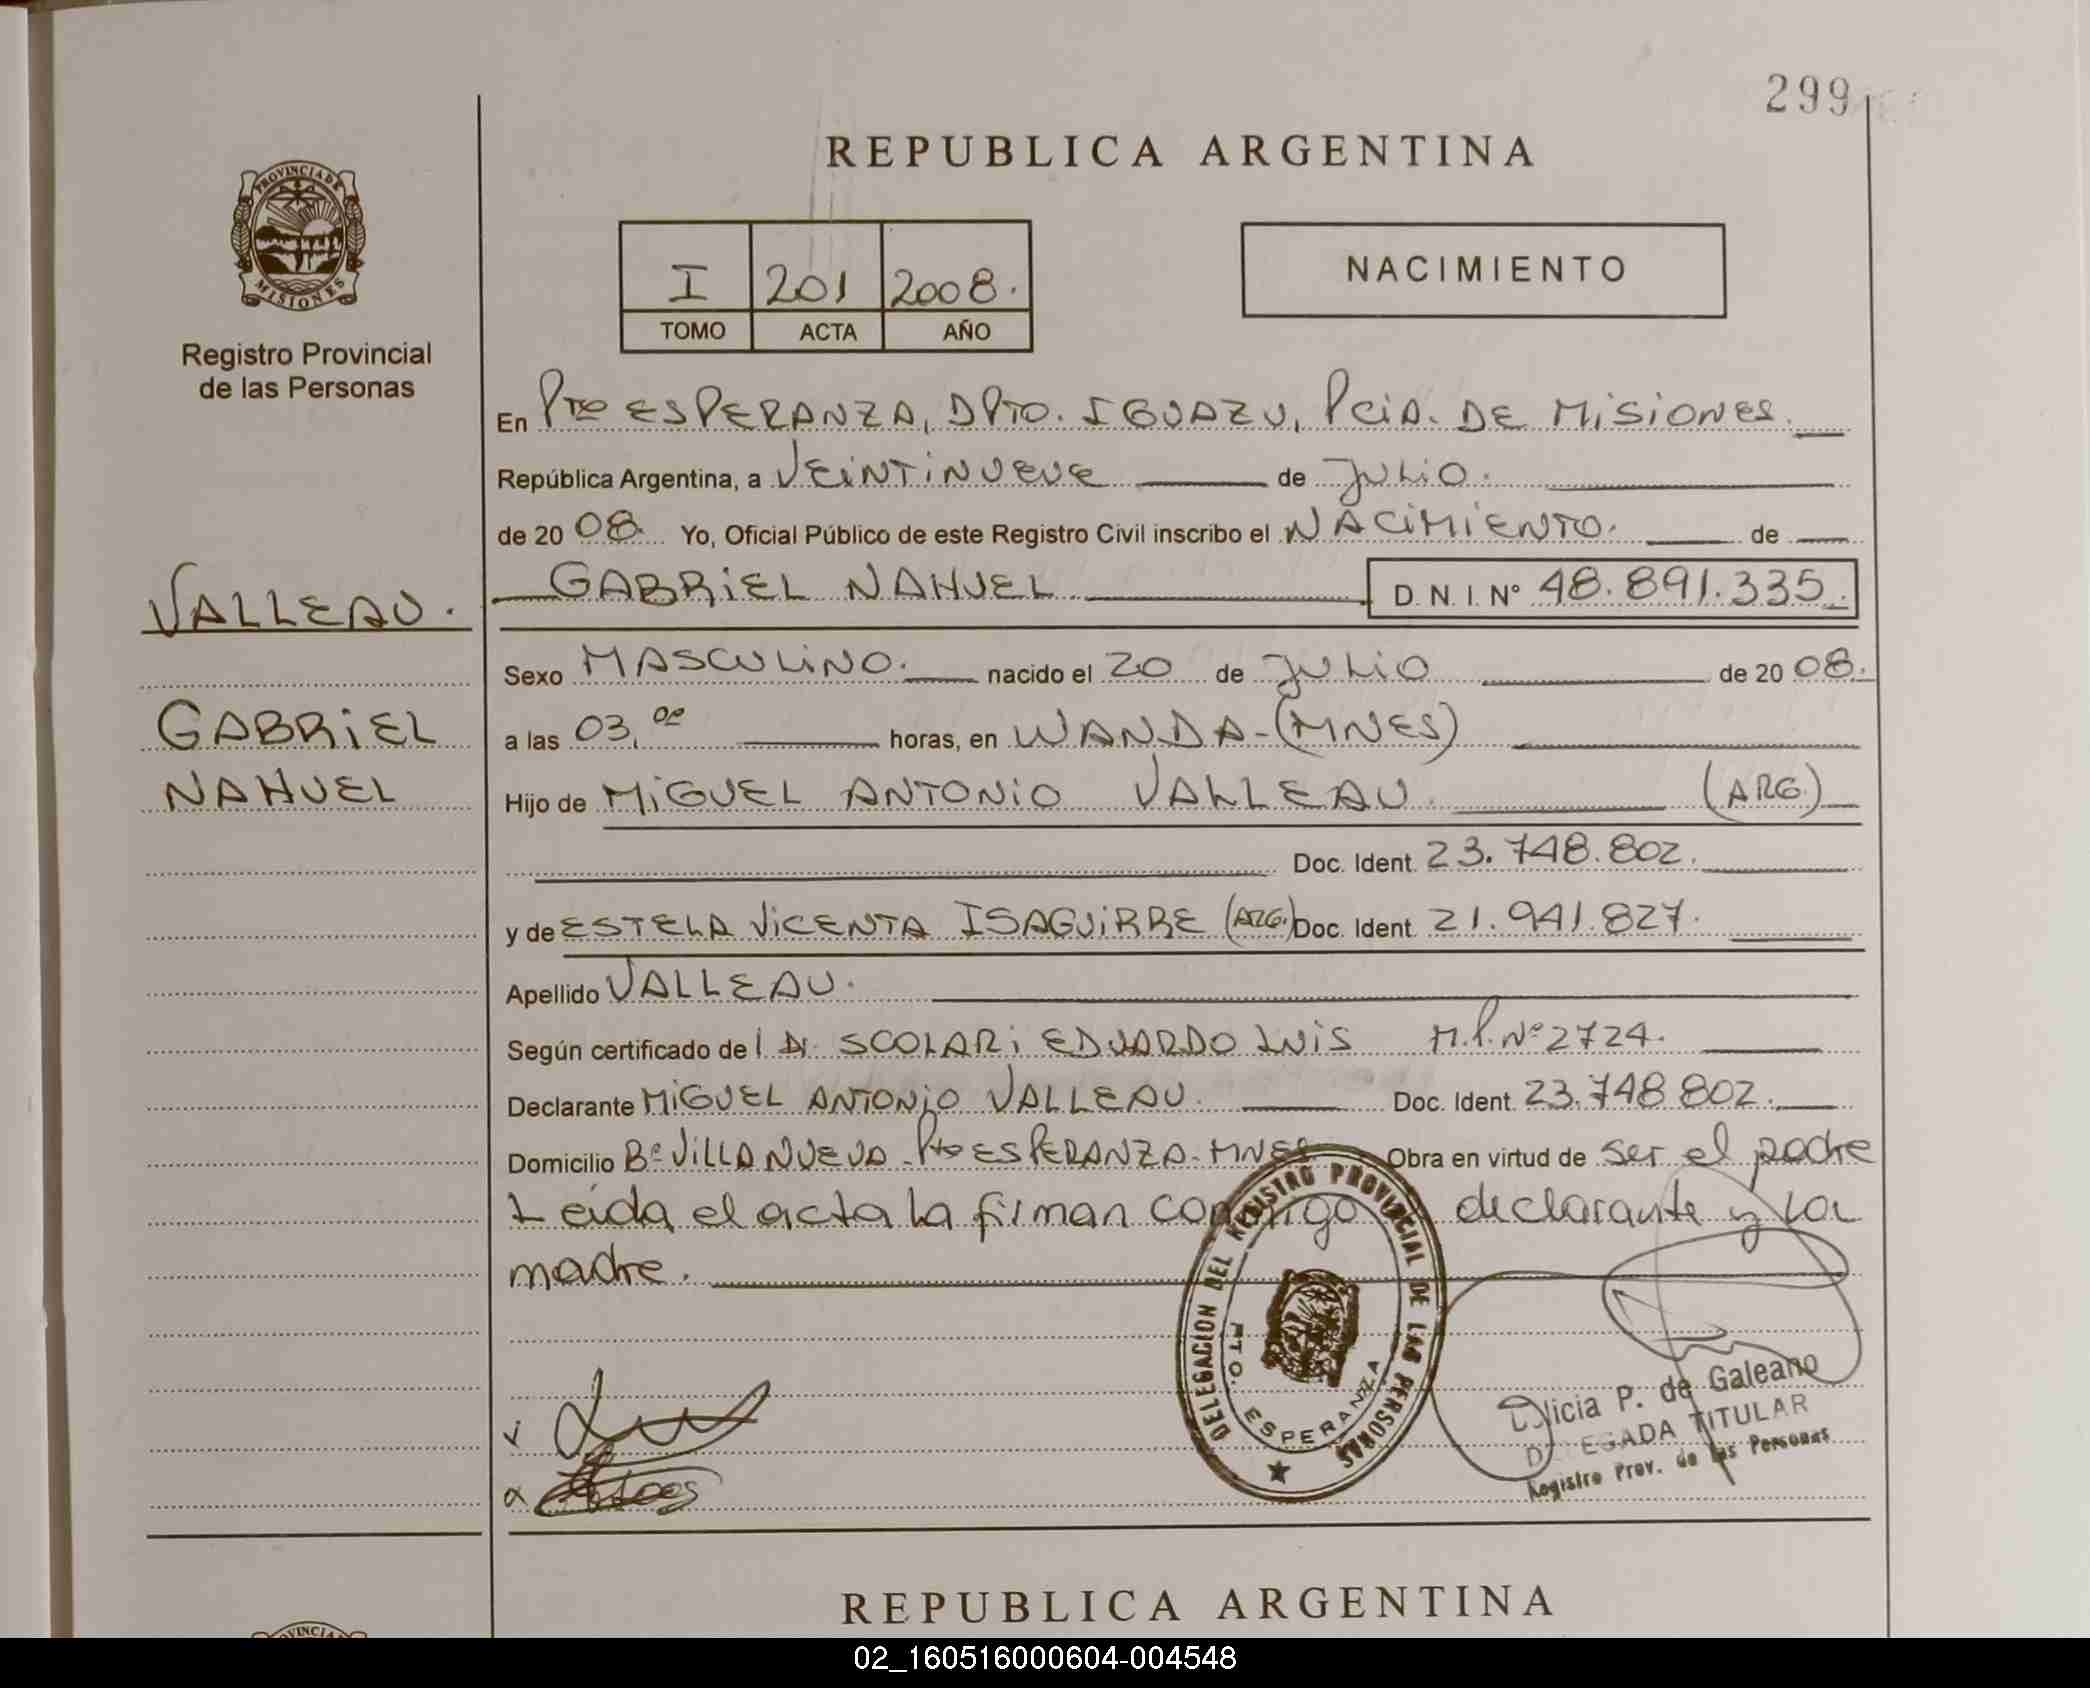 299
REPUBLICA ARGENTINA
PROVINCIA DE
MISIONES
Registro Provincial
de las Personas
I 201 2008.
TOMO ACTA AÑO
NACIMIENTO
En Pto ESPERANZA, DPTO. IGUAZU, PCIA. DE MISIONES.
República Argentina, a VEINTINUEVE de JULIO.
de 20 08. Yo, Oficial Público de este Registro Civil inscribo el NACIMIENTO. de
VALLEAU.
GABRIEL NAHUEL D.N.I. Nº 48.891.335.
Sexo MASCULINO. nacido el 20 de JULIO de 20 08.
GABRIEL
a las 03,00 horas, en WANDA-(MNES)
NAHUEL
Hijo de MIGUEL ANTONIO VALLEAU (ARG.)
Doc. Ident. 23.748.802.
y de ESTELA VICENTA ISAGUIRRE (ARG.) Doc. Ident. 21.941.827.
Apellido VALLEAU.
Según certificado del Dr SCOLARI EDUARDO LUIS M.P. Nº 2724.
Declarante MIGUEL ANTONIO VALLEAU. Doc. Ident. 23.748.802.
Domicilio Bº VILLA NUEVA - Pto ESPERANZA - MNES Obra en virtud de ser el padre
Leida el acta la firman conmigo declarante y la
madre.
DELEGACION DEL REGISTRO PROVINCIAL DE LAS PERSONAS
PTO. ESPERANZA
P. de Galeano
DELEGADA TITULAR
Registro Prov. de las Personas
REPUBLICA ARGENTINA
02_160516000604-004548